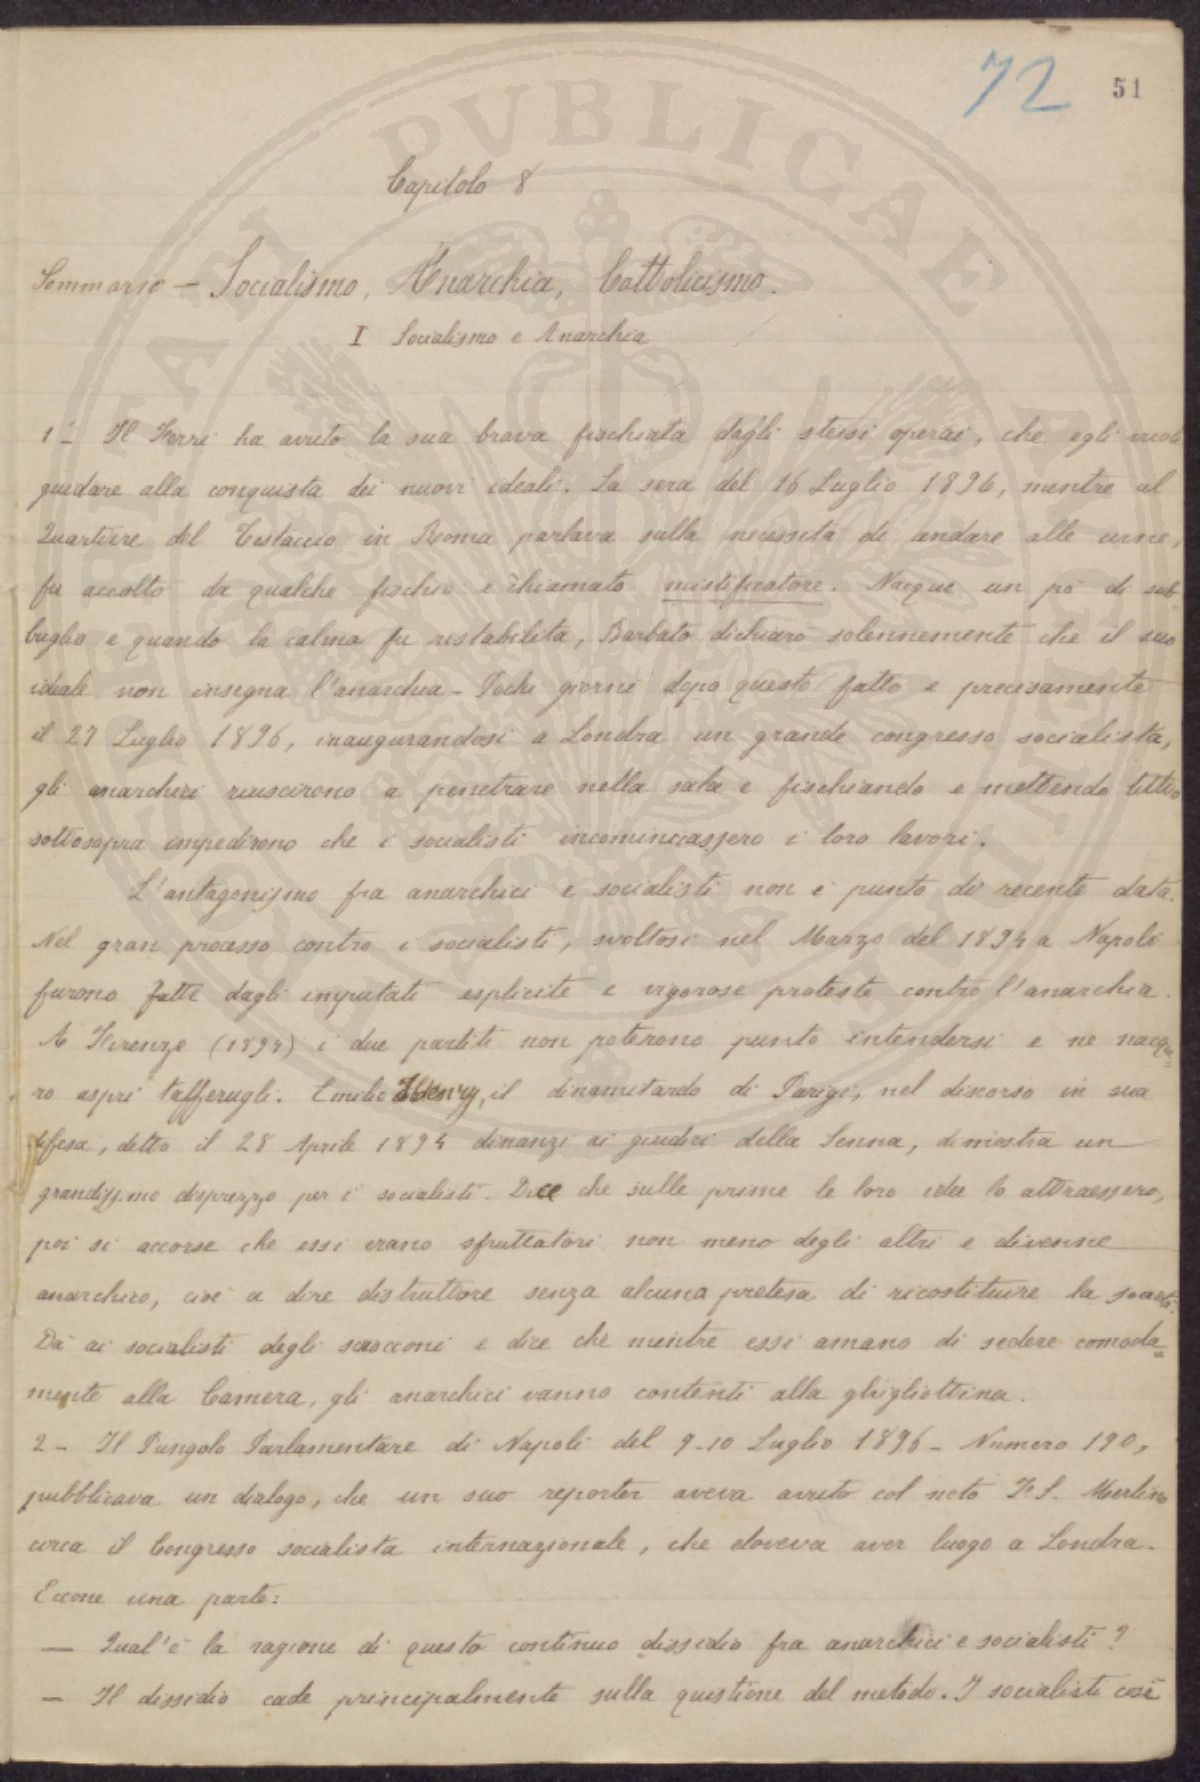 72 51
Capitolo 8
Sommario - Socialismo, Anarchia, Cattolicismo.
I Socialismo e Anarchia
1º- Il Ferri ha avuto la sua brava fischiata dagli stessi operai, che egli vuole
guidare alla conquista dei nuovi ideali. La sera del 16 Luglio 1896, mentre al
Quartiere del Testaccio in Roma parlava sulla necessità di andare alle urne,
fu accolto da qualche fischio e chiamato mistificatore. Nacque un pò di sub-
buglio e quando la calma fu ristabilita, Barbato dichiarò solennemente che il suo
ideale non insegna l'anarchia - Pochi giorni dopo questo fatto e precisamente
il 27 Luglio 1896, inaugurandosi a Londra un grande congresso socialista,
gli anarchici riuscirono a penetrare nella sala e fischiando e mettendo tutto
sottosopra impedirono che i socialisti incominciassero i loro lavori.
L'antagonismo fra anarchici e socialisti non è punto di recente data.
Nel gran processo contro i socialisti, svoltosi nel Marzo del 1894 a Napoli
furono fatte dagli imputati esplicite e vigorose proteste contro l'anarchia.
A Firenze (1894) i due partiti non poterono punto intendersi e ne nacque=
ro aspri tafferugli. Emilio Henry, il dinamitardo di Parigi, nel discorso in sua
difesa, detto il 28 Aprile 1894 dinanzi ai giudici della Senna, dimostra un
grandissimo disprezzo per i socialisti. Dice che sulle prime le loro idee lo attraessero,
poi si accorse che essi erano sfruttatori non meno degli altri e divenne
anarchico, cioè a dire distruttore senza alcuna pretesa di ricostituire la società.
Dà ai socialisti degli scrocconi e dice che mentre essi amano di sedere comoda=
mente alla Camera, gli anarchici vanno contenti alla ghigliottina.
2 - Il Pungolo Parlamentare di Napoli del 9-10 Luglio 1896 - Numero 190,
pubblicava un dialogo, che un suo reporter aveva avuto col noto F. S. Merlino
circa il Congresso socialista internazionale, che doveva aver luogo a Londra.
Eccone una parte:
- Qual'è la ragione di questo continuo dissidio fra anarchici e socialisti?
- Il dissidio cade principalmente sulla quistione del metodo. I socialisti così